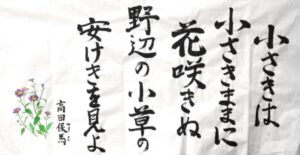 小さきは
小さきままに
花咲きぬ
野辺の小草の
安けきを見よ
高田保馬